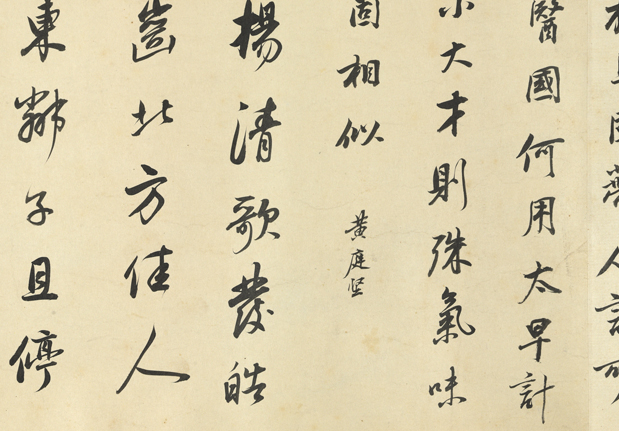 人言可
醫國何用太早計
小大才則殊氣味
固相似
黃庭堅
楊清歌發皓
齒北方佳人
東鄰子且停